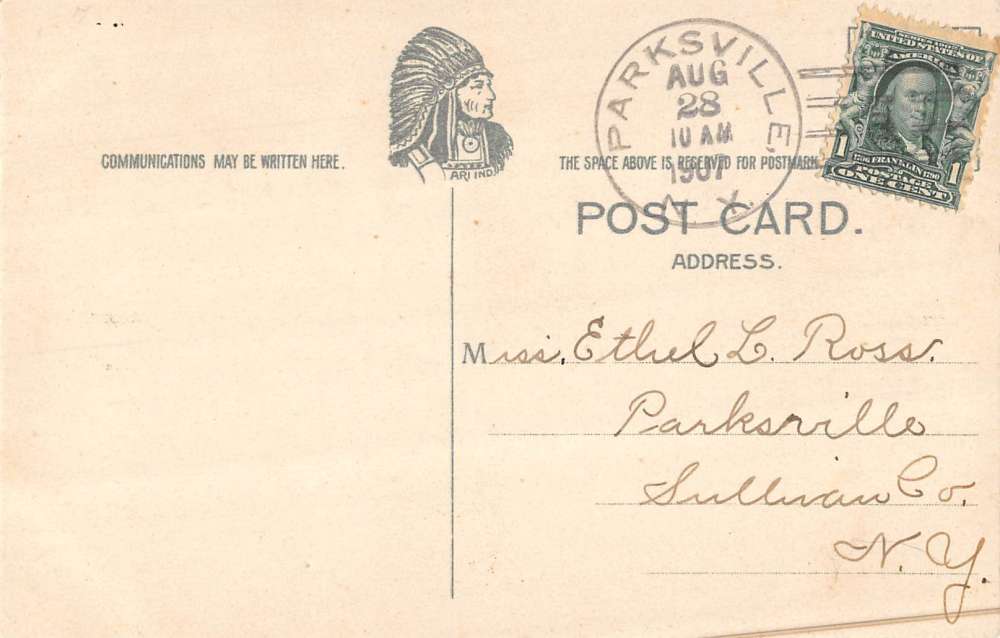 COMMUNICATIONS MAY BE WRITTEN HERE.
ARI IND
PARKSVILLE,
AUG
28
10 AM
1907
N. Y.
SERIES 1902
UNITED STATES OF
AMERICA
1706 FRANKLIN 1790
1 POSTAGE 1
ONE CENT
THE SPACE ABOVE IS RESERVED FOR POSTMARK
POST CARD.
ADDRESS.
Miss, Ethel L. Ross.
Parksville
Sullivan Co.
N. Y.